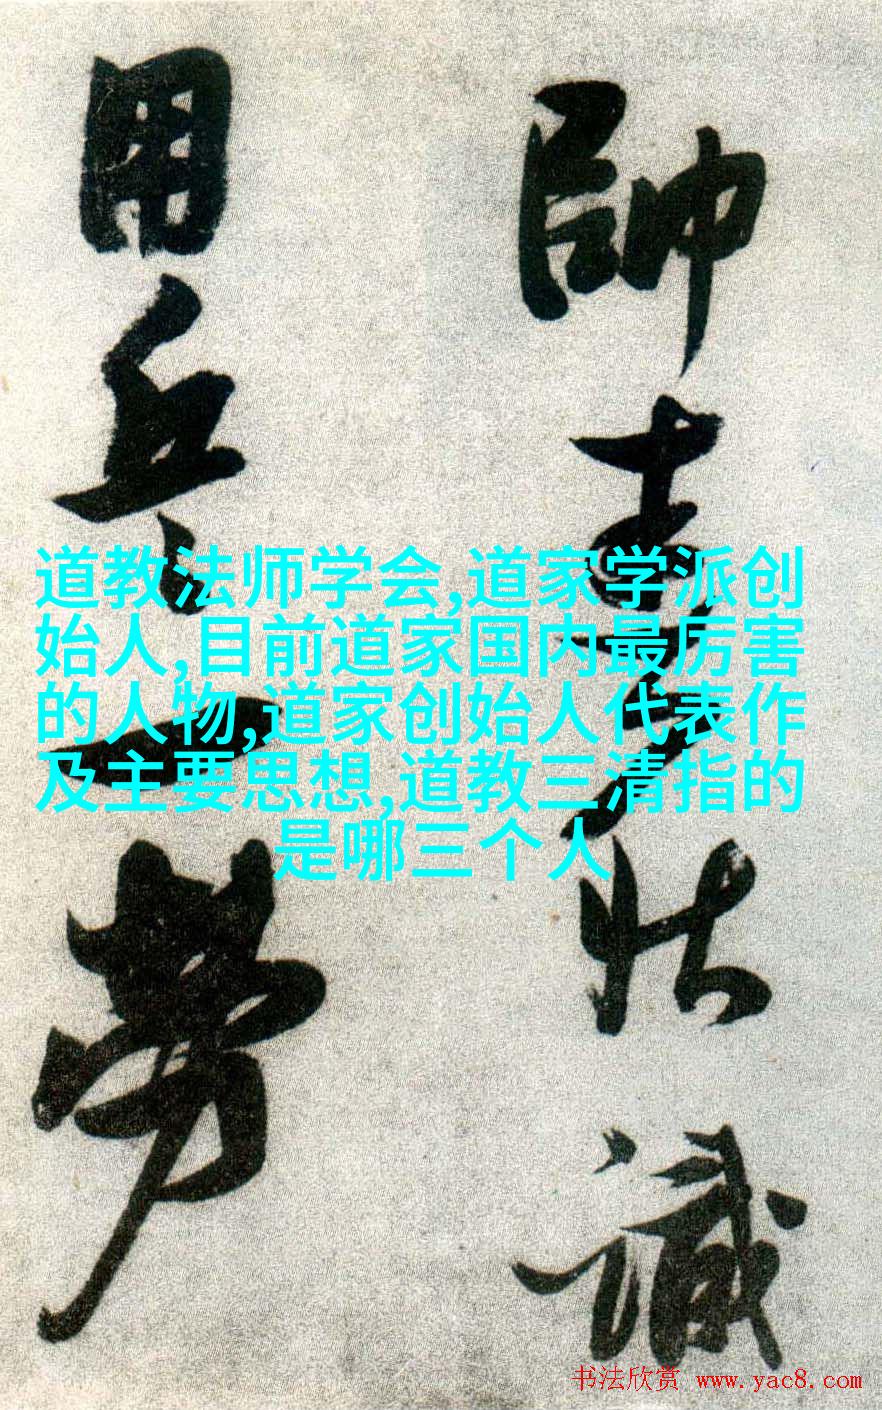 帥識
用兵一勞
道教法师学会,道家学派创
始人,目前道家国内最厉害
的人物,道家创始人代表作
及主要思想,道教三清指的
是哪三个人
书法欣赏 www.yac8.com